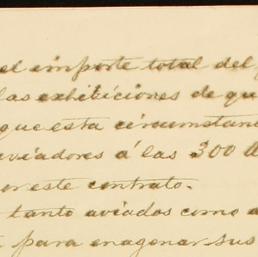 el importe total del
las exhibiciones de qu
que esta circunstan
aviadores á las 300 a
or este contrato.
tanto aviados como a
para enagenar sus